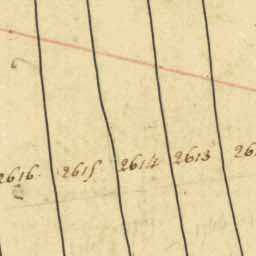 2616 2615 2614 2613